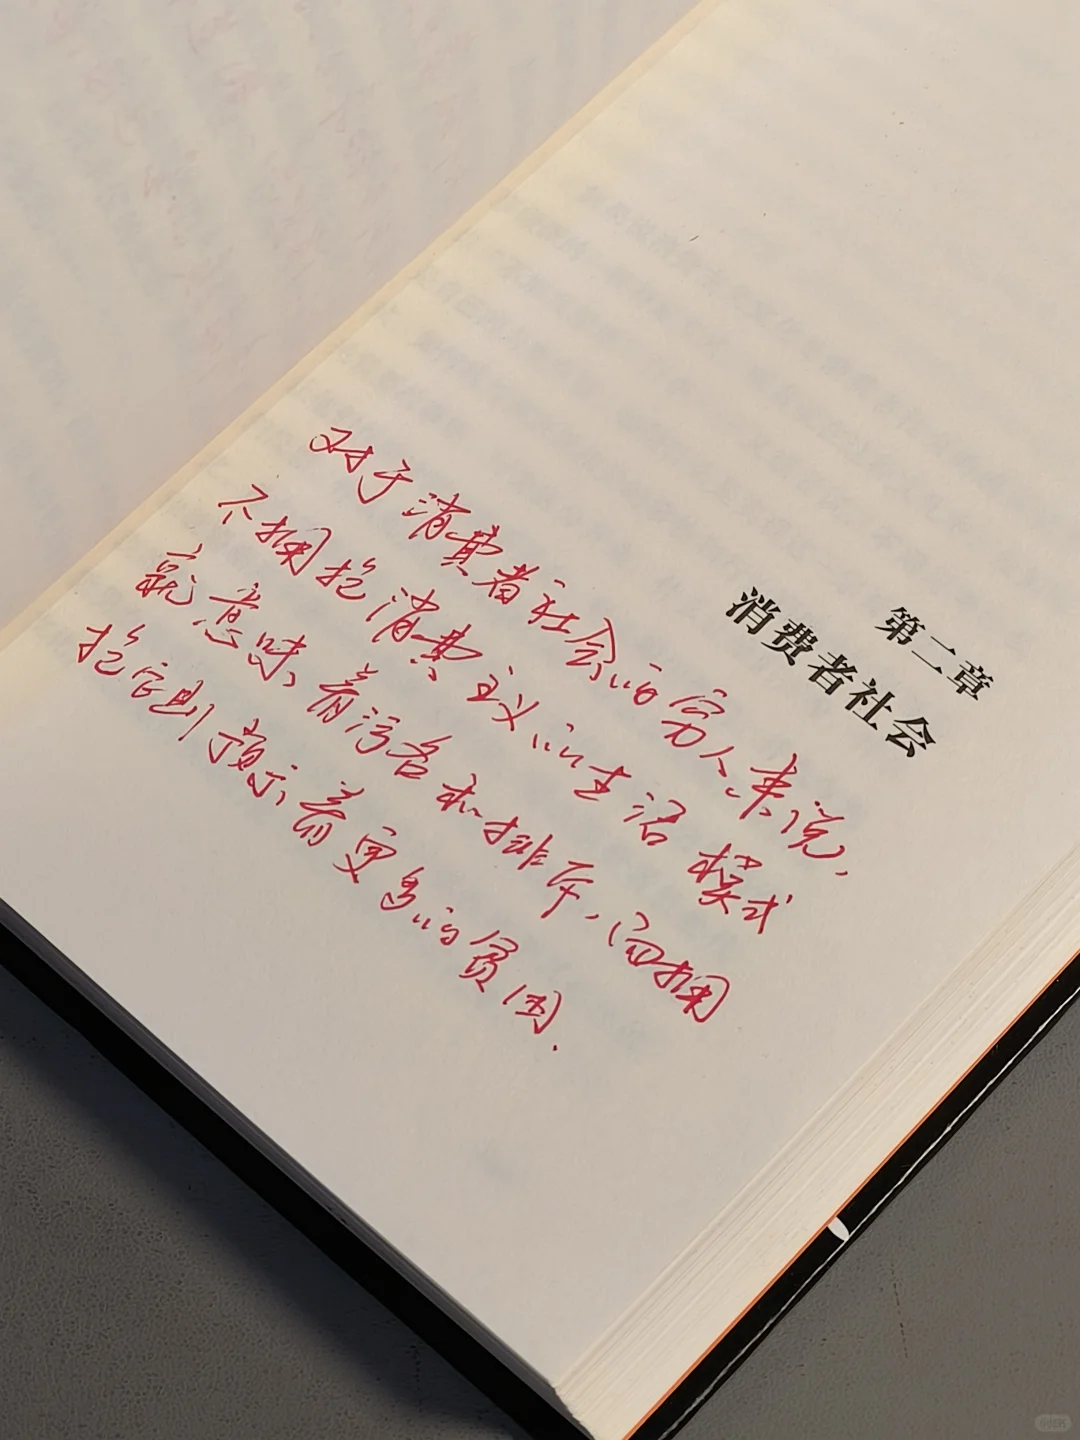 第二章
消费者社会
对于消费者社会的穷人来说，
不拥抱消费主义的生活模式
就意味着污名和排斥，而拥
抱它则预示着更多的贫困.